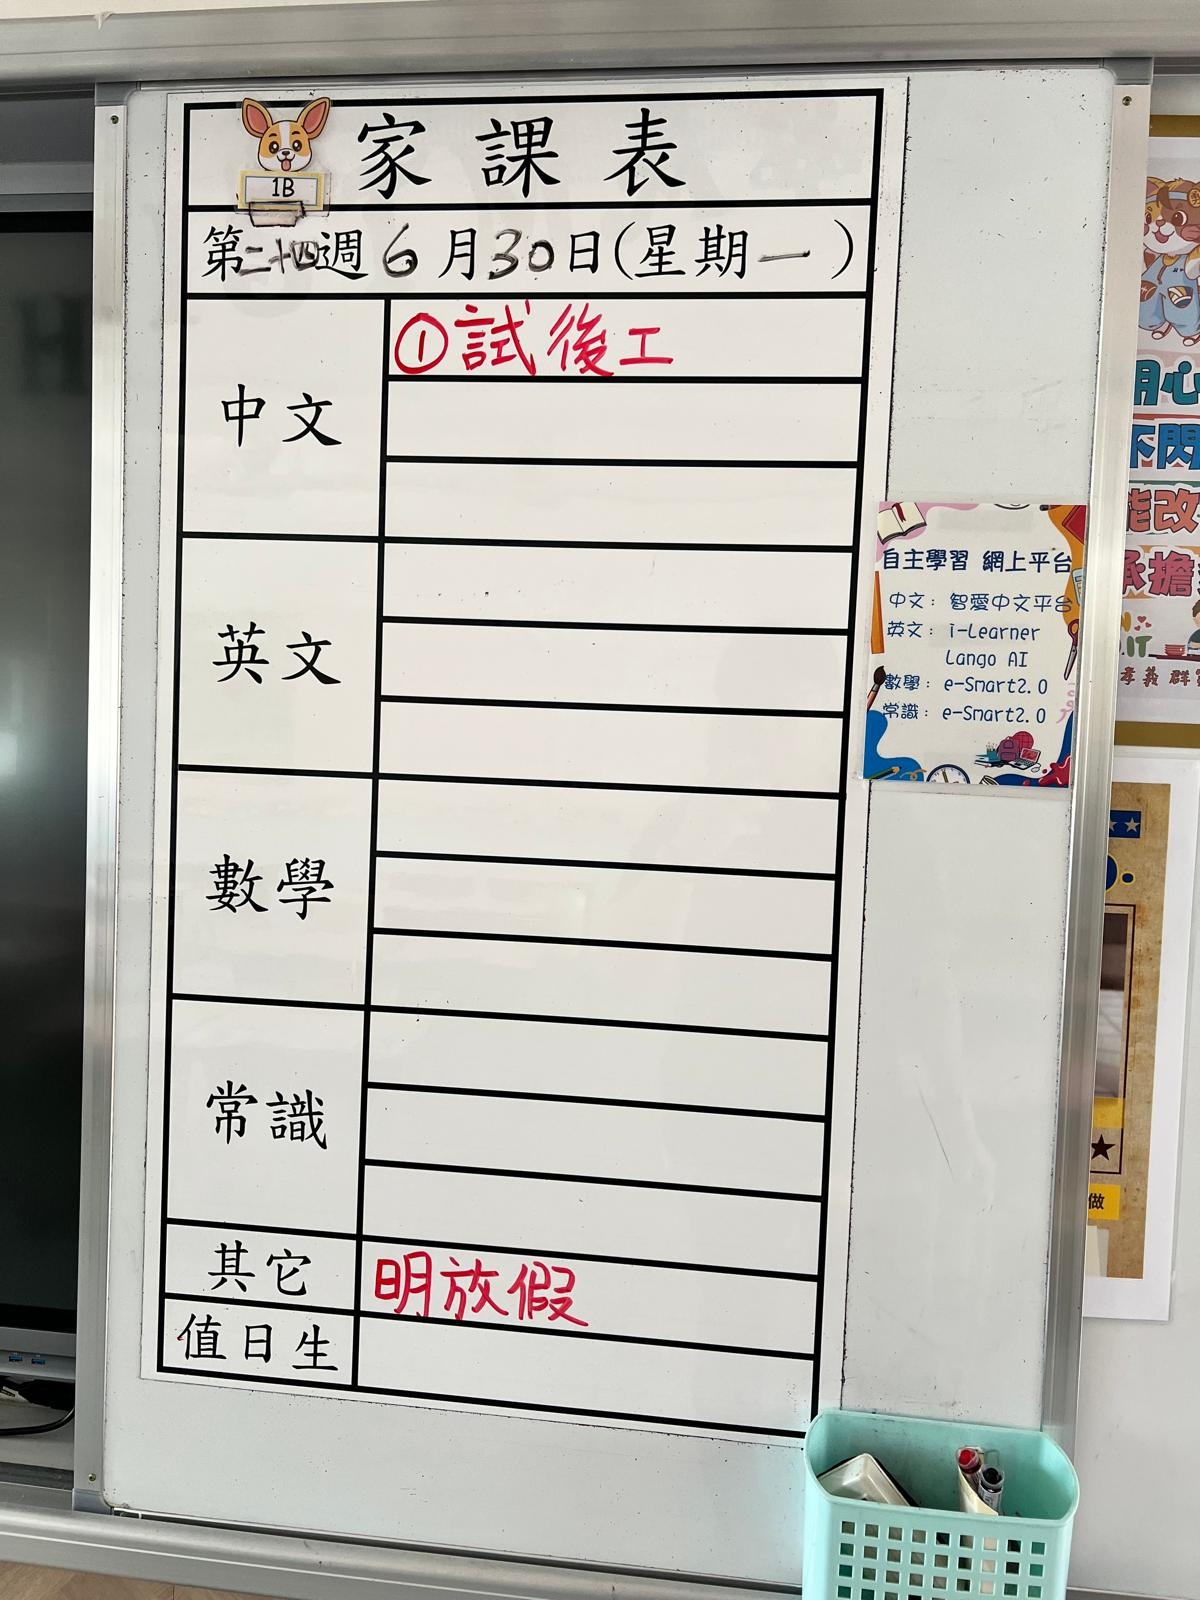 家課表
1B
第二十四週6月30日(星期一)
中文
①試後工
英文
數學
常識
其它
明放假
值日生
自主學習 網上平台
中文：智愛中文平台
英文：i-Learner
Lango AI
數學：e-Smart2.0
常識：e-Smart2.0
用心
不閃
能改
承擔
孝義 群
做